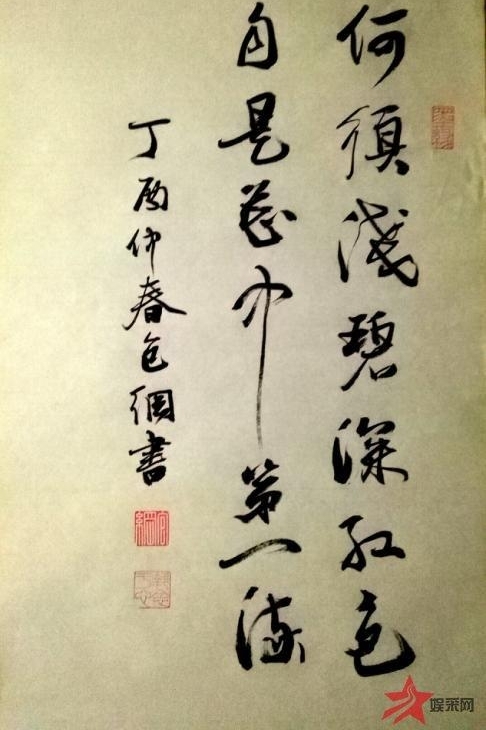 何须浅碧深红色
自是花中第一流
丁酉仲春包綱書
娱采网